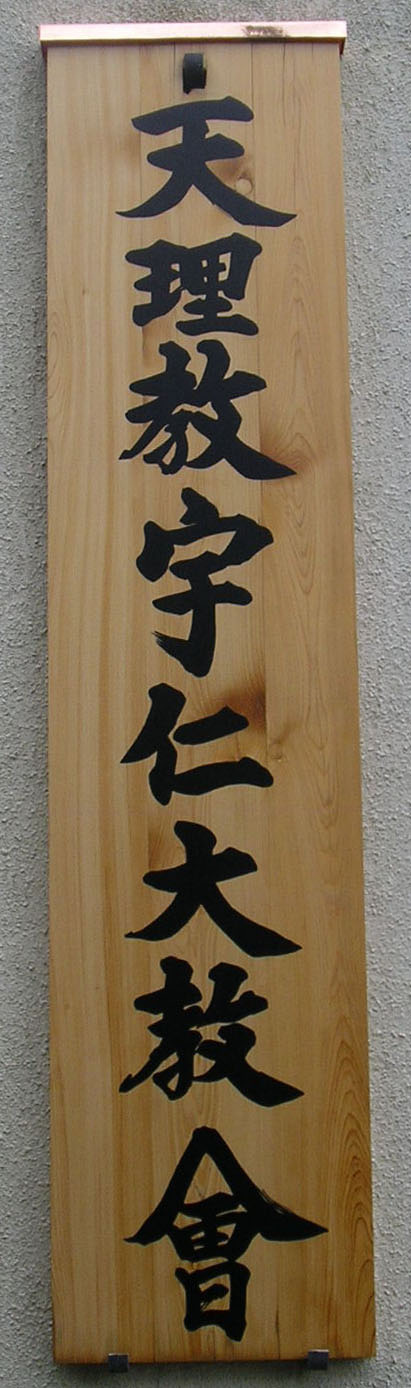 天理教宇仁大教會